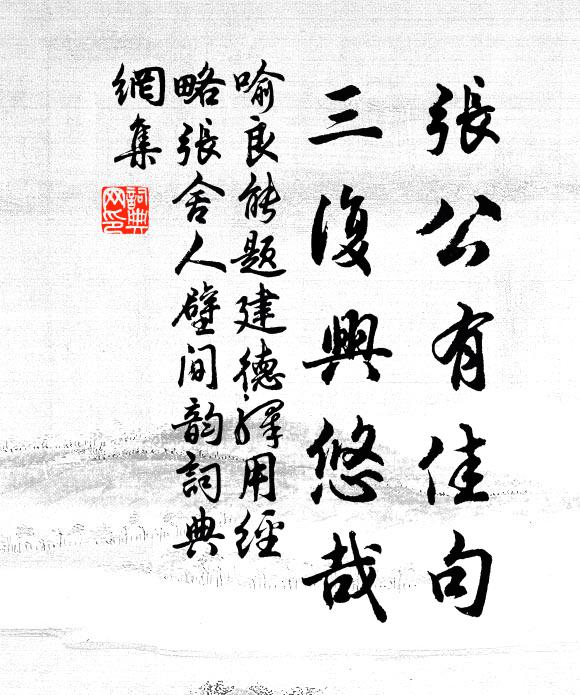 張公有佳句
三復興悠哉
喻良能題建德驛用經
略張舍人壁间韵詞典
網集
詞典
网印